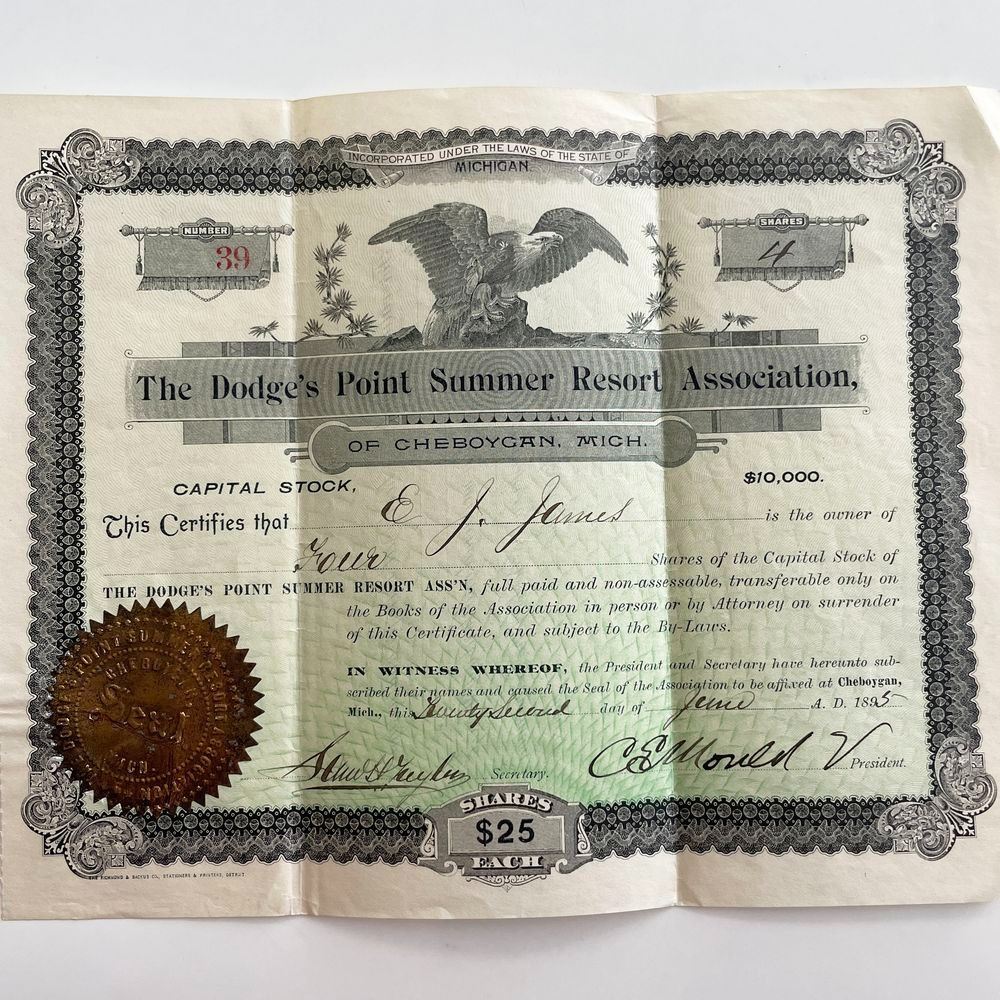 INCORPORATED UNDER THE LAWS OF THE STATE OF
MICHIGAN.
NUMBER
39
SHARES
4
The Dodge's Point Summer Resort Association,
OF CHEBOYGAN, MICH.
CAPITAL STOCK,
$10,000.
This Certifies that E. J. James is the owner of
Four Shares of the Capital Stock of
THE DODGE'S POINT SUMMER RESORT ASS'N, full paid and non-assessable, transferable only on
the Books of the Association in person or by Attorney on surrender
of this Certificate, and subject to the By-Laws.
IN WITNESS WHEREOF, the President and Secretary have hereunto sub-
scribed their names and caused the Seal of the Association to be affixed at Cheboygan,
Mich., this Twenty Second day of June A. D. 1895
Secretary.
President.
SHARES
$25
EACH
THE RICHMOND & BACKUS CO., STATIONERS & PRINTERS, DETROIT